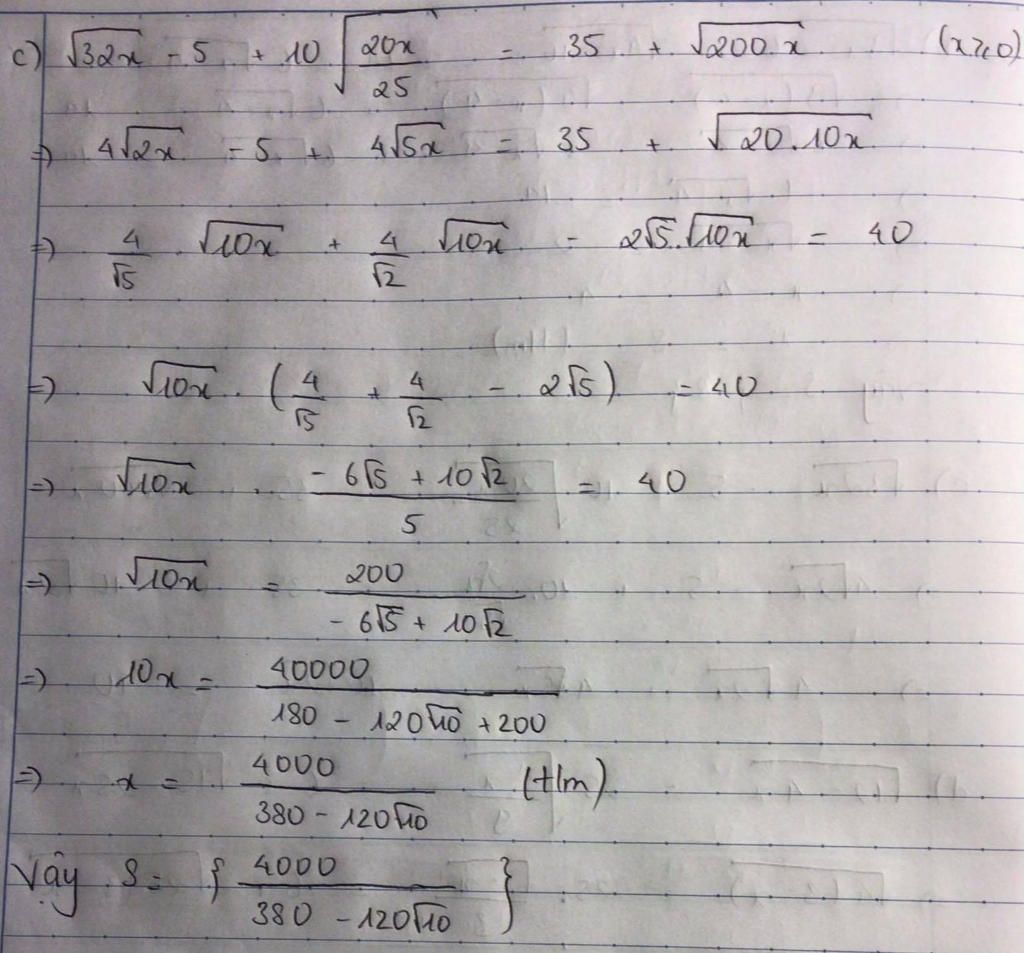 c) √32x - 5 + 10 √(20x/25) = 35 + √200x (x ≥ 0)
=> 4√2x - 5 + 4√5x = 35 + √20.10x
=> 4/√5 . √10x + 4/√2 √10x - 2√5.√10x = 40
=> √10x . (4/√5 + 4/√2 - 2√5) = 40
=> √10x . (-6√5 + 10√2)/5 = 40
=> √10x = 200/(-6√5 + 10√2)
=> 10x = 40000/(180 - 120√10 + 200)
=> x = 4000/(380 - 120√10) (t/m)
Vậy S = { 4000/(380 - 120√10) }